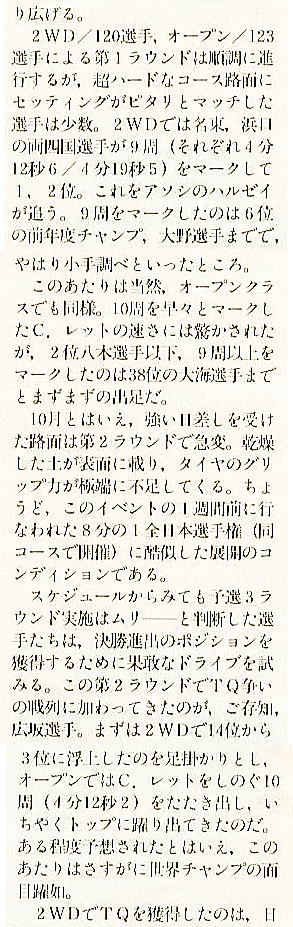 り広げる。
　2WD／120選手，オープン／123
選手による第1ラウンドは順調に進
行するが，超ハードなコース路面に
セッティングがピタリとマッチした
選手は少数。2WDでは名東，浜口
の両四国選手が9周（それぞれ4分
12秒6／4分19秒5）をマークして
1，2位。これをアソシのハルゼイ
が追う。9周をマークしたのは6位
の前年度チャンプ，大野選手までで，
やはり小手調べといったところ。
　このあたりは当然，オープンクラ
スでも同様。10周を早々とマークし
たC．レットの速さには驚かされた
が，2位八木選手以下，9周以上を
マークしたのは38位の大海選手まで
とまずまずの出足だ。
　10月とはいえ，強い日差しを受け
た路面は第2ラウンドで急変。乾燥
した土が表面に載り，タイヤのグリ
ップ力が極端に不足してくる。ちょ
うど，このイベントの1週間前に行
なわれた8分の1全日本選手権（同
コースで開催）に酷似した展開のコ
ンディションである。
　スケジュールからみても予選3ラ
ウンド実施はムリ――と判断した選
手たちは，決勝進出のポジションを
獲得するために果敢なドライブを試
みる。この第2ラウンドでTQ争い
の戦列に加わってきたのが，ご存知，
広坂選手。まずは2WDで14位から
3位に浮上したのを足掛かりとし，
オープンではC．レットをしのぐ10
周（4分12秒2）をたたき出し，い
ちやくトップに躍り出てきたのだ。
ある程度予想されたとはいえ，この
あたりはさすがに世界チャンプの面
目躍如。
　2WDでTQを獲得したのは，日